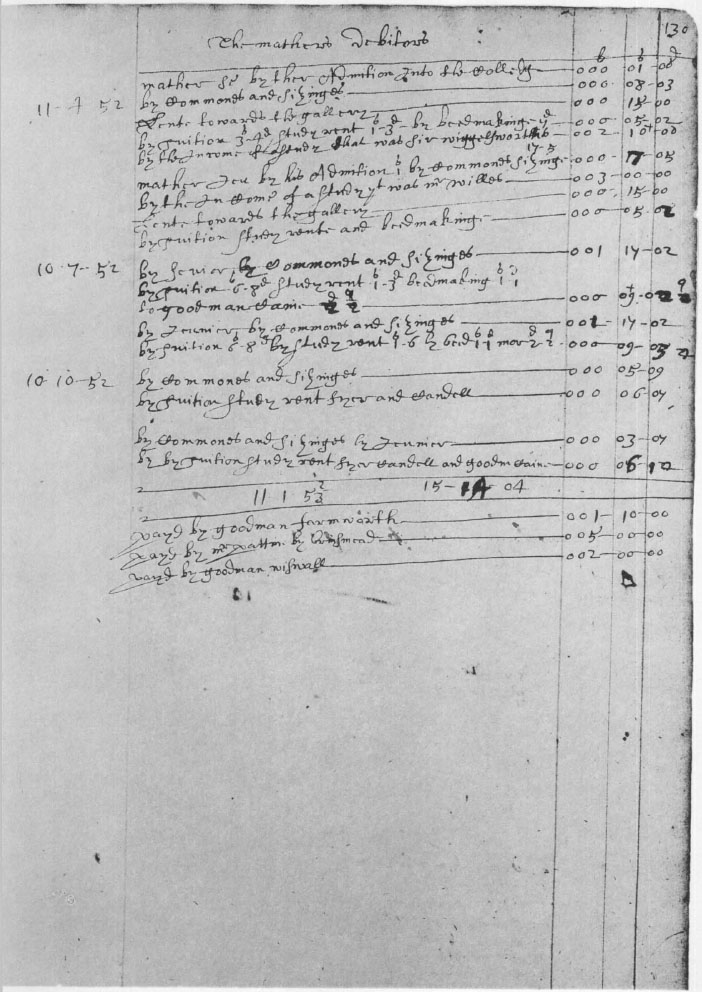 130
The mathers Debitors
mather se by ther Admition Into the Colledg 000 01 08
11-4 52 by Commones and Sizinges 000 08-03
Rente towards the gallery 000 15 00
by tuition 3s-4d study rent 1s-3d by beedmakinge 000-05-02
by the Income of a study that was sir wigglesworths 002 10 00
mather Jeu by his Admition 1 by Commones Sizinge 17-5 000-17-05
by the In Come of a study yt was mr willes 003-00-00
Rente towards the gallery 000-15-00
by tuition study rente and beedmakinge 000 05 02
10-7-52 by sevior by Commones and sizinges 001 17-02
by tuition 6-8d study rent 1s-3d beedmaking 1s 1
to goodman Caine 2d 2q 000 09-02 2q
by Jeunier by Commones and sizinges 001 17-02
by tuition 6s-8d by study rent 1s-6 by beed 1s 1 mor 2d 2q 000 09-
10-10-52 by Commones and sizinges 000 05-09
by tuition study rent fyer and Candell 000 06-07
by Commones and sizinges by Jeunier 000 03-07
by by tuition study rent fyer Candell and goodm Caine 000 06 10
11 1 52/3 15-14 04
payd by goodman farnworth 001-10-00
payd by mr pattin by Brismead 005 00 00
payd by goodman wiswall 002 00 00